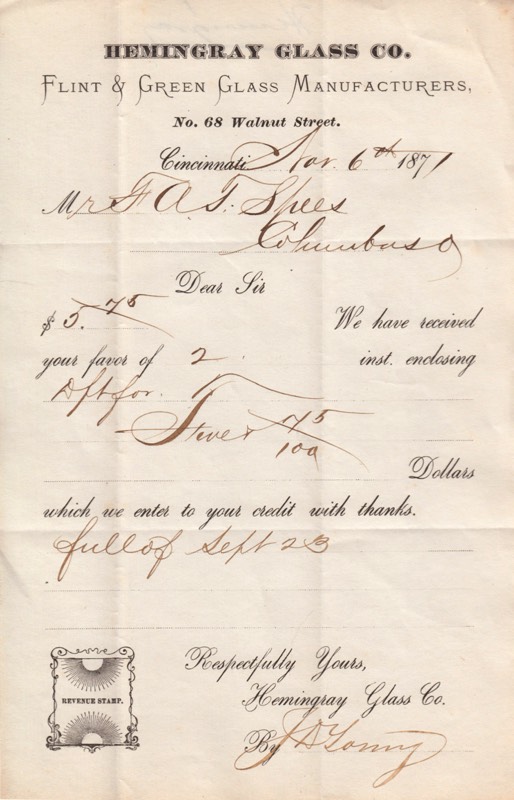 HEMINGRAY GLASS CO.
FLINT & GREEN GLASS MANUFACTURERS,
No. 68 Walnut Street.
Cincinnati Nov. 6th 1871
Mr F A T. Spees
Columbus O
Dear Sir
$ 5.75 We have received
your favor of 2. inst. enclosing
Dft for.
Five & 75/100
Dollars
which we enter to your credit with thanks.
full of Sept 23
Respectfully Yours,
REVENUE STAMP.
Hemingray Glass Co.
By